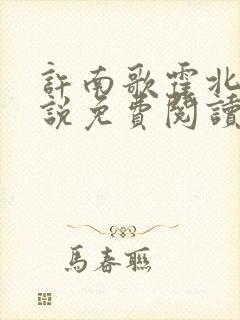 許南歌霍北
說免費閱讀
馬春聯